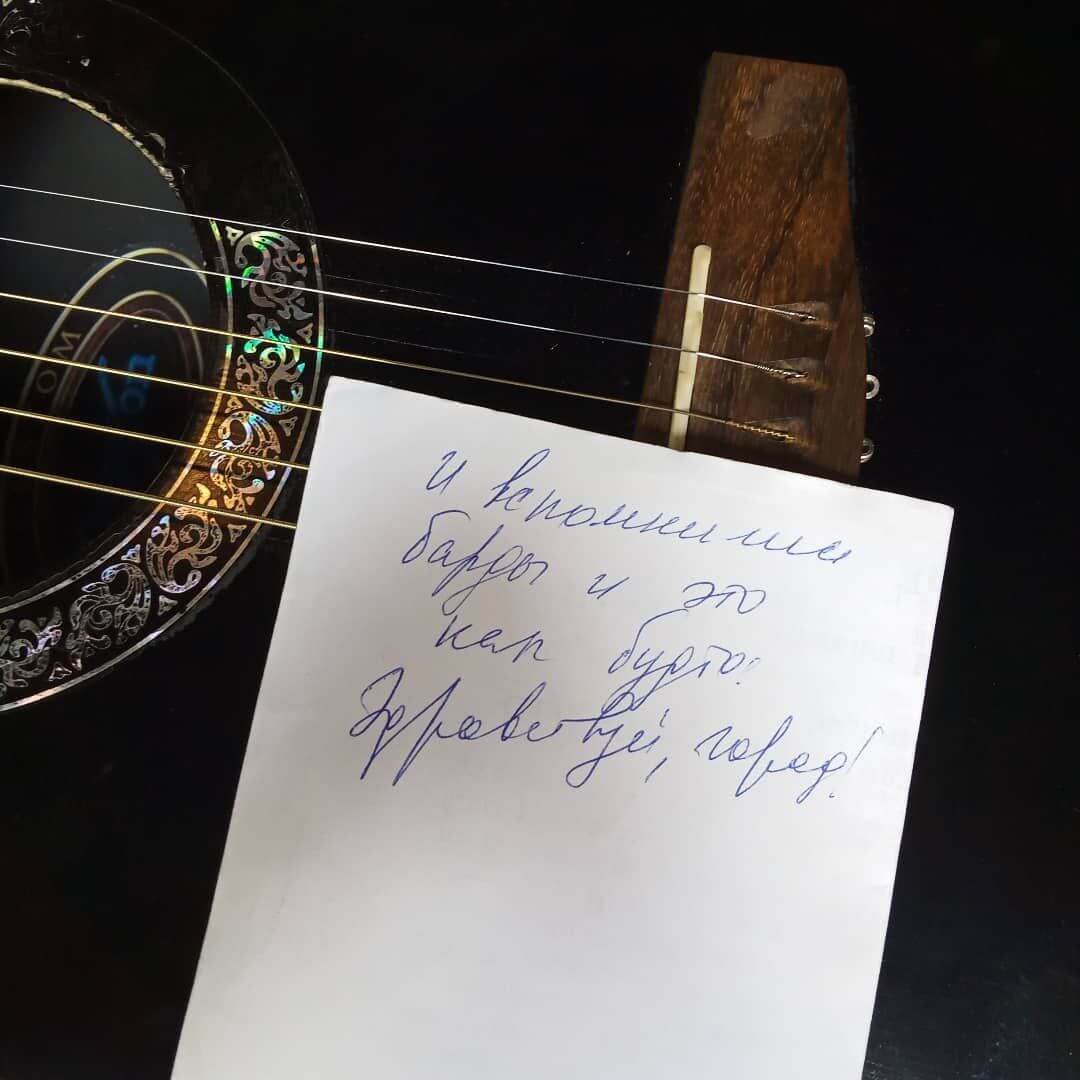 и вспомнили
барды и это
как будто:
Здравствуй, город!
ОМ